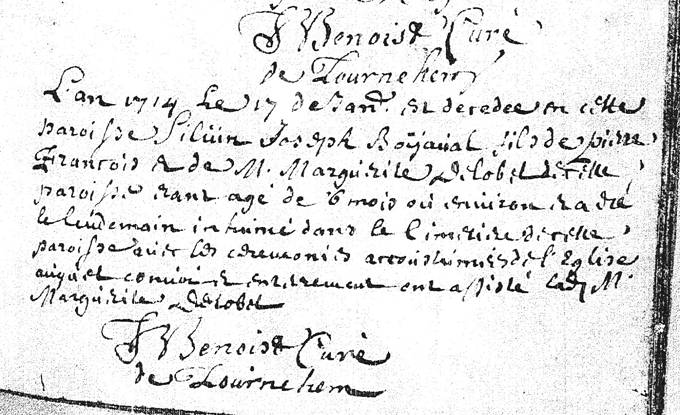 J Benoist Curé
de Tournehem
L'an 1714 Le 17 de Janr. est decedée en cette
paroisse Siluin Joseph Boÿaual fils de pierre
Francois et de M. Marguerite Delobel de cette
paroisse etant agé de 6 mois ou environ et a été
le lendemain inhumé dans le Cimetiere de cette
paroisse avec les ceremonies accoutumées de l'Eglise
auquel convoi et enterrement ont assisté lad. M.
Marguerite Delobel
J Benoist Curé
de Tournehem